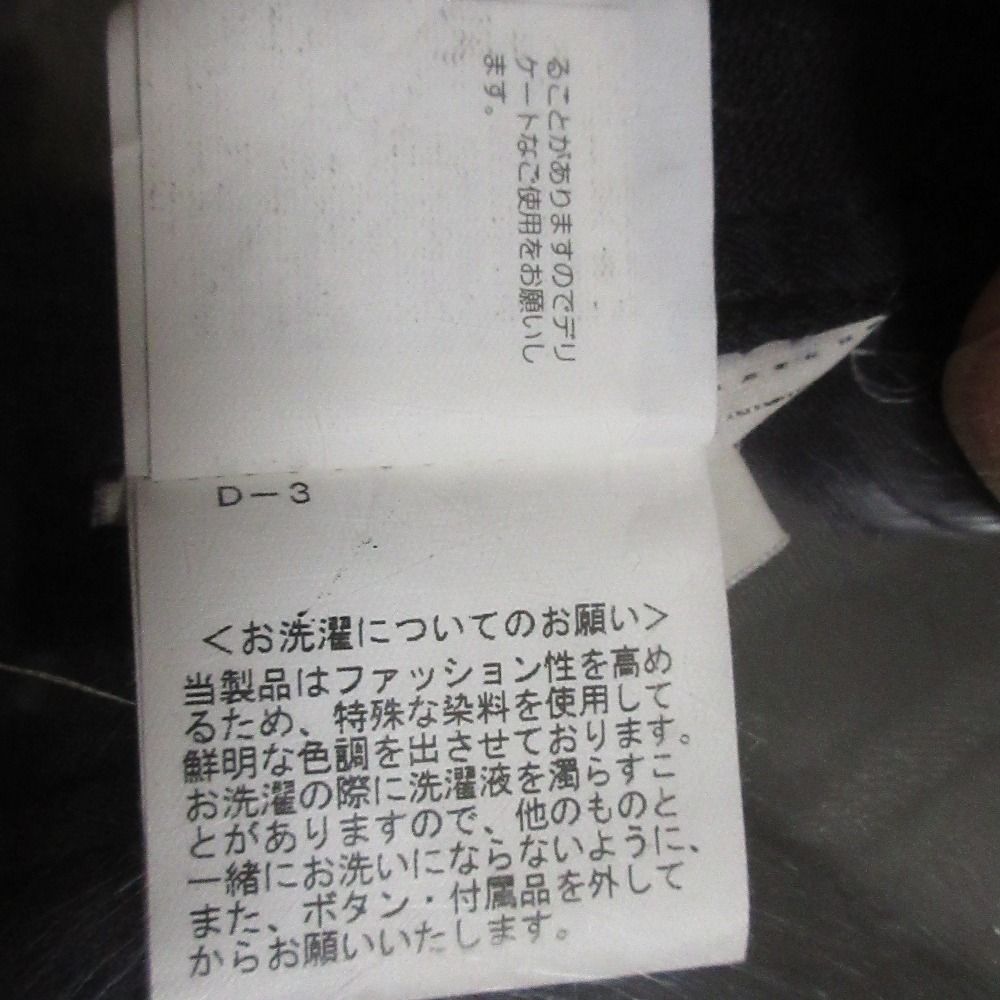 ることがありますのでデリ
ケートなご使用をお願いし
ます。
D-3
<お洗濯についてのお願い>
当製品はファッション性を高め
るため、特殊な染料を使用して
鮮明な色調を出させております。
お洗濯の際に洗濯液を濁らすこ
とがありますので、他のものと
一緒にお洗いにならないように、
また、ボタン・付属品を外して
からお願いいたします。